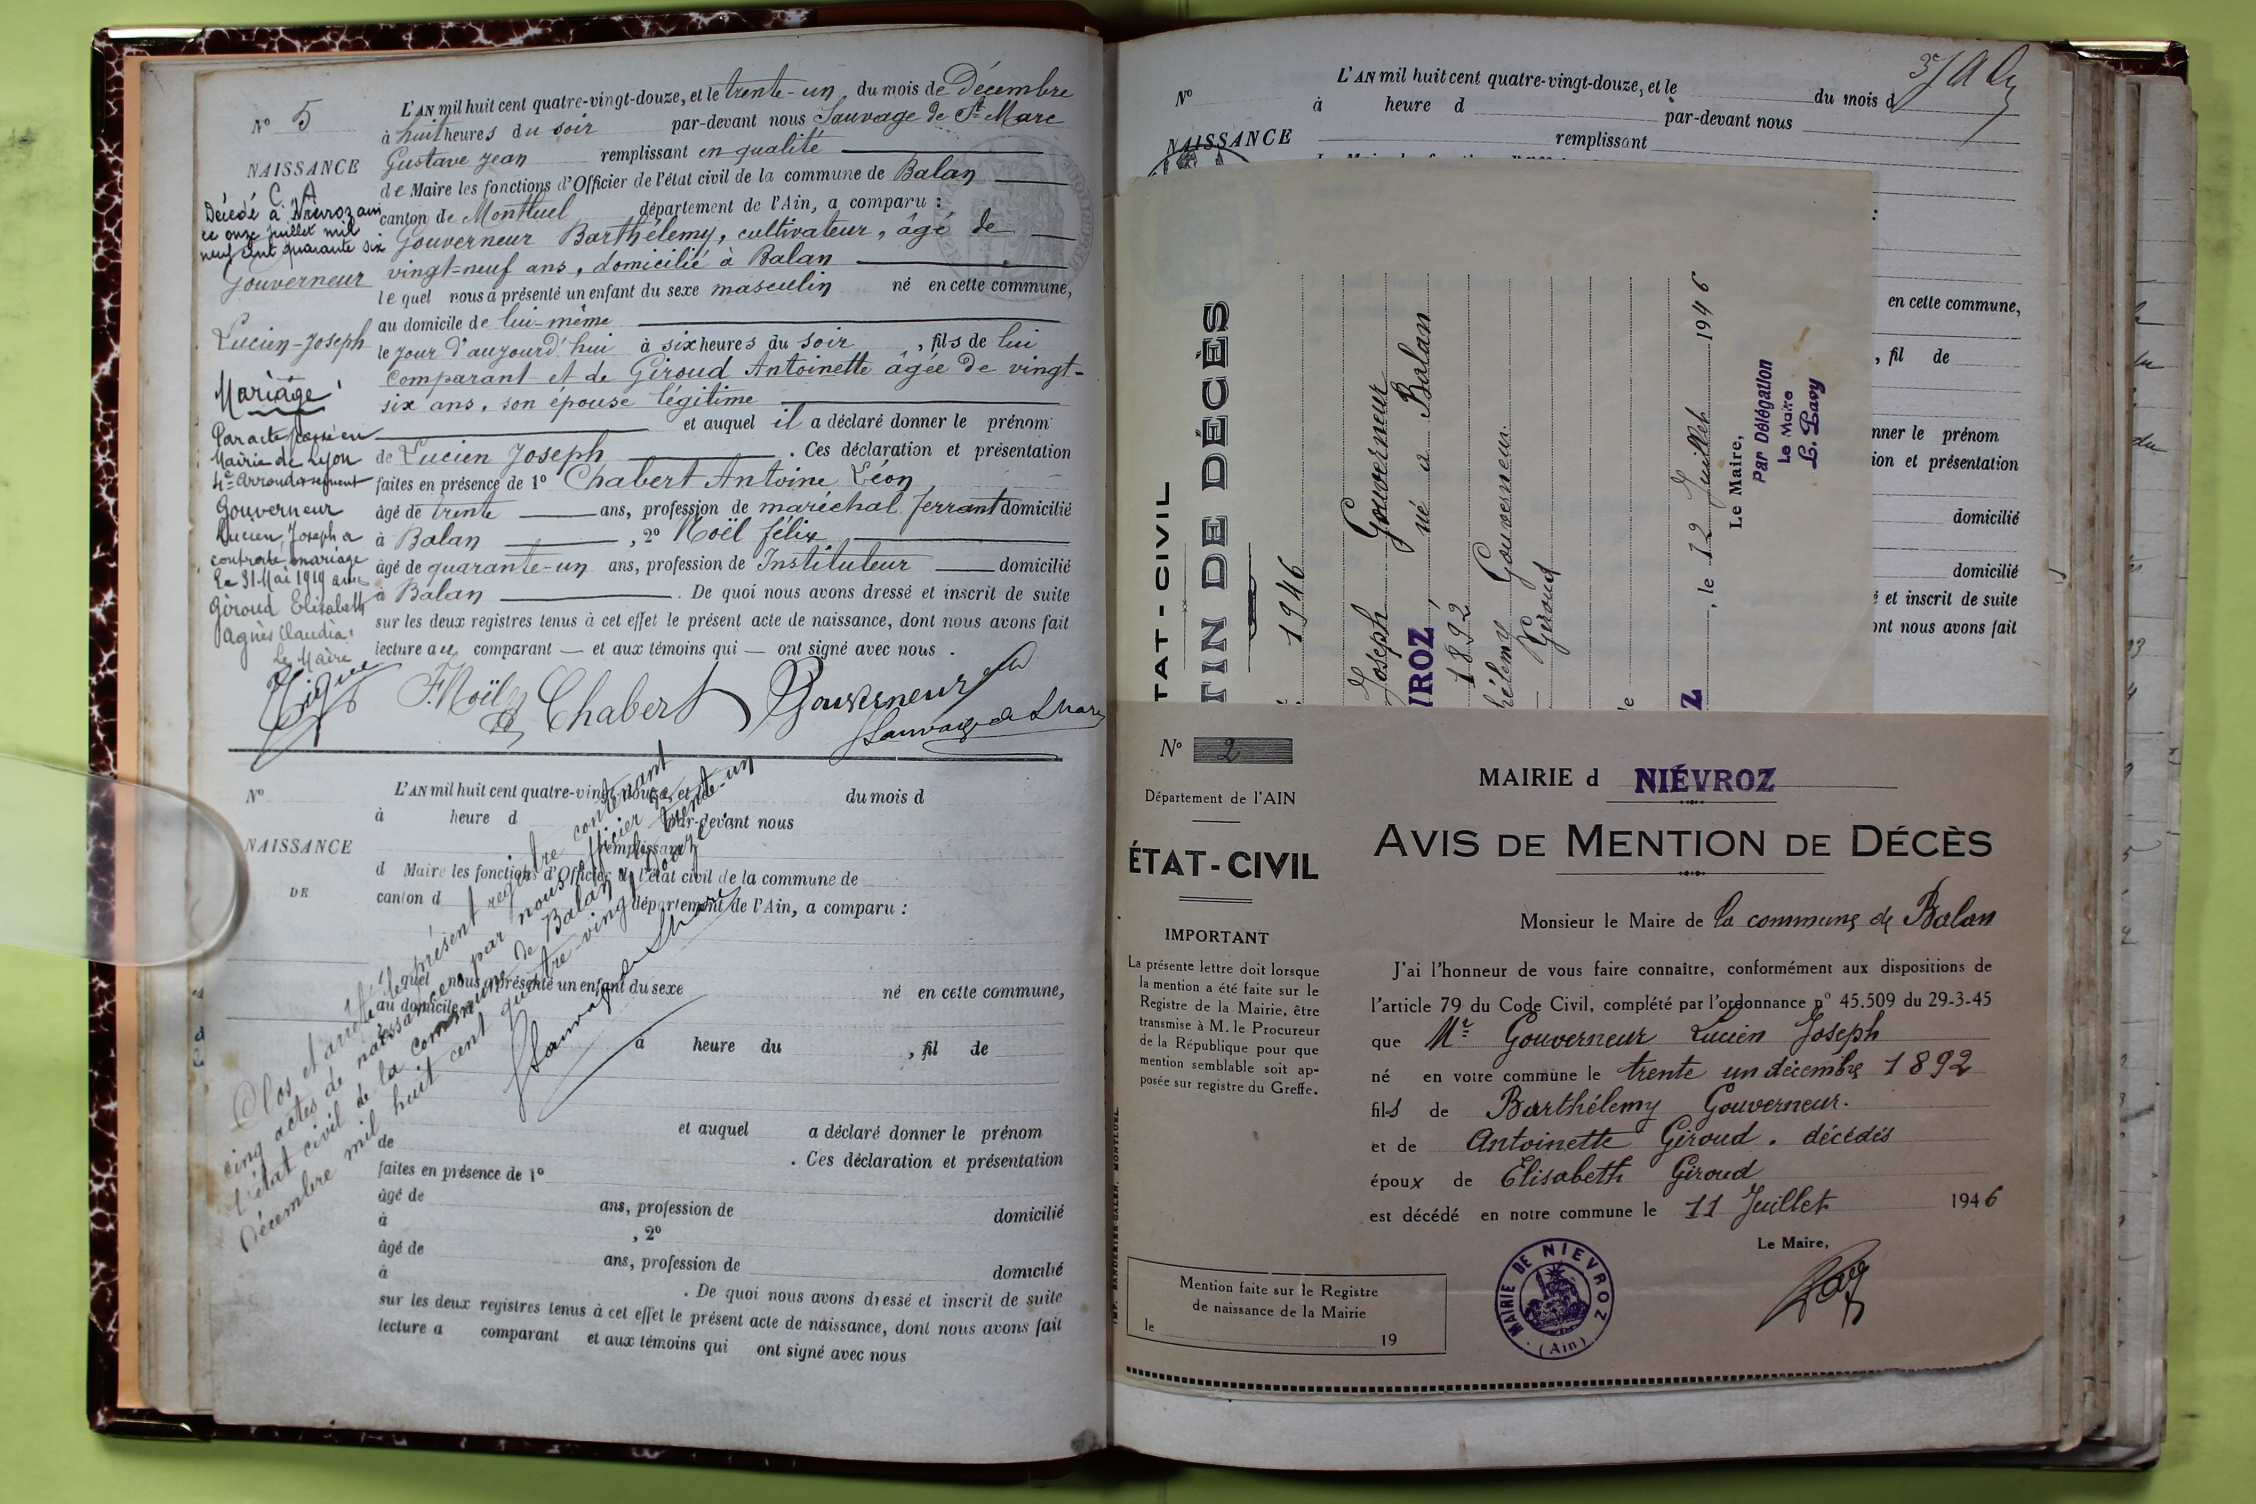 N° 5
NAISSANCE
Décédé à Niévroz ain
ce onze juillet mil
neuf cent quarante six
Gouverneur
Lucien-Joseph
Mariage
Par acte passé en
Mairie de Lyon
4e arrondissement
Gouverneur
Lucien, Joseph a
contracté mariage
le 31 Mai 1919 avec
Giroud Elisabeth
Agnès Claudia.
Le Maire
L'AN mil huit cent quatre-vingt-douze, et le trente-un du mois de Décembre
à huit heures du soir par-devant nous Sauvage de St Marc
Gustave Jean remplissant en qualité
de Maire les fonctions d'Officier de l'état civil de la commune de Balan
canton de Montluel département de l'Ain, a comparu :
Gouverneur Barthélemy, cultivateur, âgé de
vingt-neuf ans, domicilié à Balan
lequel nous a présenté un enfant du sexe masculin né en cette commune,
au domicile de lui-même
le jour d'aujourd'hui à six heures du soir, fils de lui
comparant et de Giroud Antoinette âgée de vingt-
six ans, son épouse légitime
et auquel il a déclaré donner le prénom
de Lucien Joseph. Ces déclaration et présentation
faites en présence de 1° Chabert Antoine Léon
âgé de trente ans, profession de maréchal ferrant domicilié
à Balan, 2° Noël félix
âgé de quarante-un ans, profession de Instituteur domicilié
à Balan. De quoi nous avons dressé et inscrit de suite
sur les deux registres tenus à cet effet le présent acte de naissance, dont nous avons fait
lecture au comparant — et aux témoins qui — ont signé avec nous.
F. Noël Chabert Gouverneur
Sauvage de St Marc
N°
NAISSANCE
DE
L'AN mil huit cent quatre-vingt-douze, et le du mois d
à heure d par-devant nous
remplissant
d Maire les fonctions d'Officier de l'état civil de la commune de
canton d département de l'Ain, a comparu :
lequel nous a présenté un enfant du sexe né en cette commune,
au domicile
à heure du , fil de
et auquel a déclaré donner le prénom
de . Ces déclaration et présentation
faites en présence de 1°
âgé de ans, profession de domicilié
à , 2°
âgé de ans, profession de domicilié
à . De quoi nous avons dressé et inscrit de suite
sur les deux registres tenus à cet effet le présent acte de naissance, dont nous avons fait
lecture a comparant et aux témoins qui ont signé avec nous
Clos et arrêté le présent registre contenant
cinq actes de naissance par nous officier de
l'état civil de la commune de Balan le trente-un
décembre mil huit cent quatre-vingt douze.
Sauvage de St Marc
N°
NAISSANCE
L'AN mil huit cent quatre-vingt-douze, et le du mois d
à heure d par-devant nous
remplissant
:
en cette commune,
, fil de
nner le prénom
ion et présentation
domicilié
domicilié
é et inscrit de suite
ont nous avons fait
TAT-CIVIL
TIN DE DÉCÈS
1946
Joseph Gouverneur
IROZ, né a Balan
1892
hélemy Gouverneur.
Giroud
Z, le 12 Juillet 1946
Le Maire,
Par Délégation
Le Maire
L. Pavy
N° 2
Département de l'AIN
ÉTAT-CIVIL
IMPORTANT
La présente lettre doit lorsque
la mention a été faite sur le
Registre de la Mairie, être
transmise à M. le Procureur
de la République pour que
mention semblable soit ap-
posée sur registre du Greffe.
MAIRIE d NIÉVROZ
AVIS DE MENTION DE DÉCÈS
Monsieur le Maire de la commune de Balan
J'ai l'honneur de vous faire connaître, conformément aux dispositions de
l'article 79 du Code Civil, complété par l'ordonnance n° 45.509 du 29-3-45
que Mr Gouverneur Lucien Joseph
né en votre commune le trente un décembre 1892
fils de Barthélemy Gouverneur.
et de Antoinette Giroud. décédés
époux de Elisabeth Giroud
est décédé en notre commune le 11 Juillet 1946
Le Maire,
MAIRIE DE NIEVROZ
(Ain)
Mention faite sur le Registre
de naissance de la Mairie
le 19